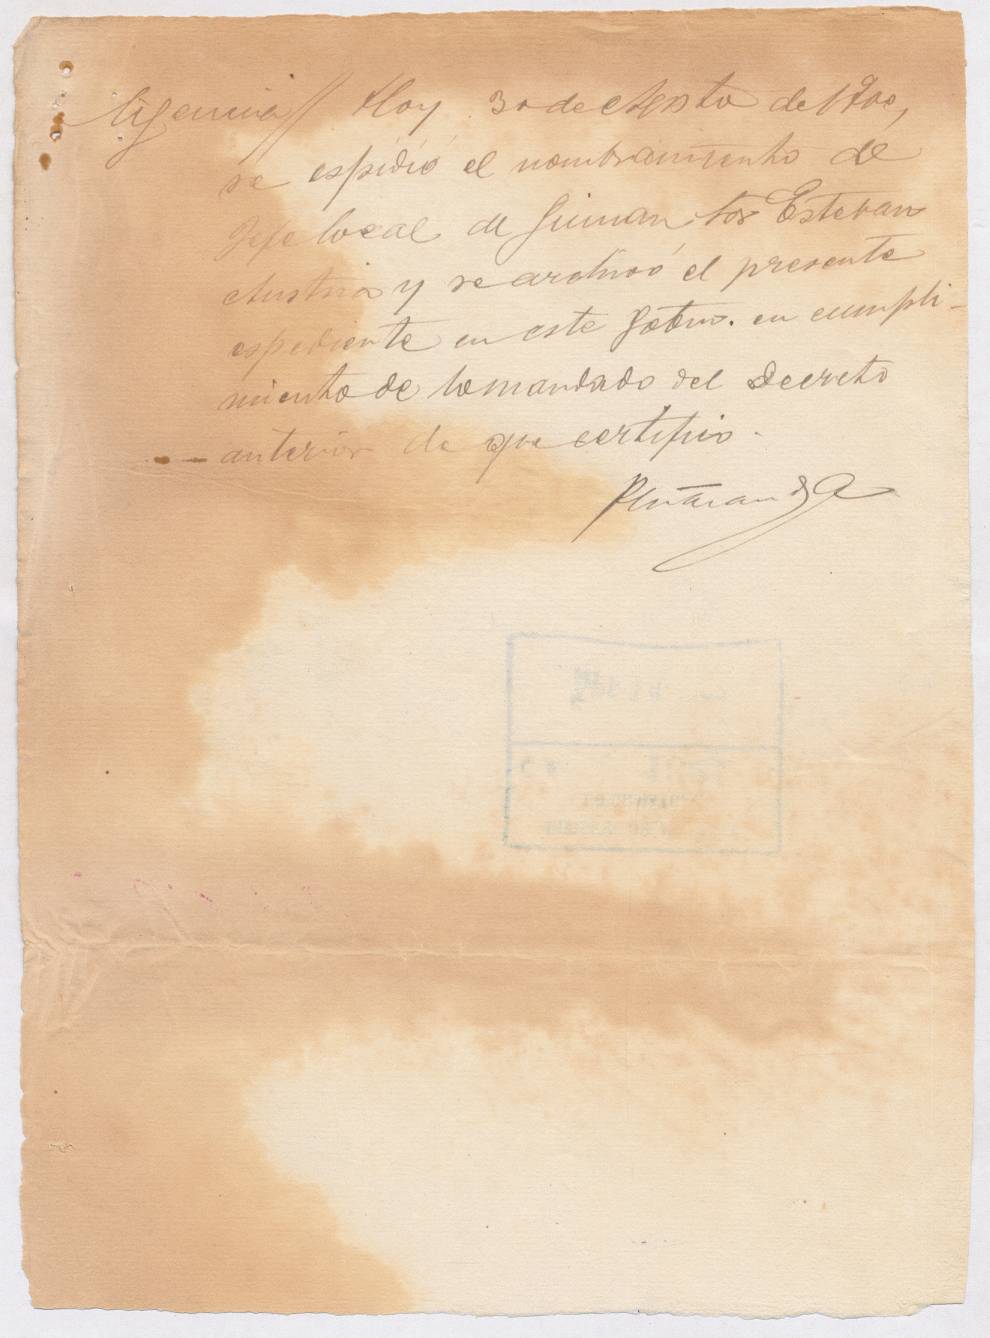 Diligencia // Hoy 30 de Agosto de 1900,
se espidió el nombramiento de
Jefe local de Sor Esteban
Austria y se archivó el presente
espediente en este Gobno. en cumpli-
miento de lo mandado del Decreto
anterior de que certifico.